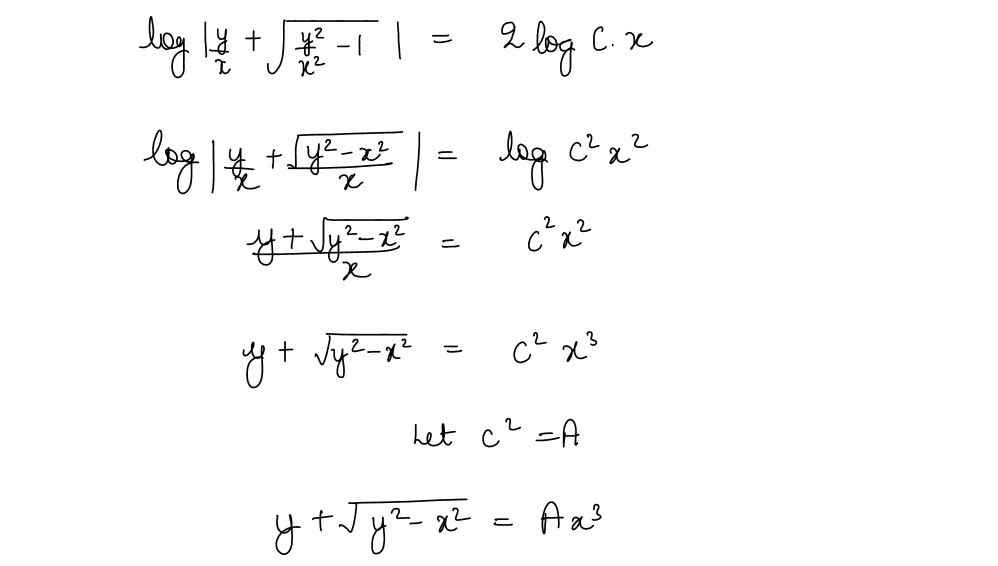 log |y/x + √(y²/x² - 1)| = 2 log C. x
log |y/x + √(y² - x²)/x| = log C² x²
(y + √(y² - x²))/x = C² x²
y + √(y² - x²) = C² x³
Let C² = A
y + √(y² - x²) = A x³